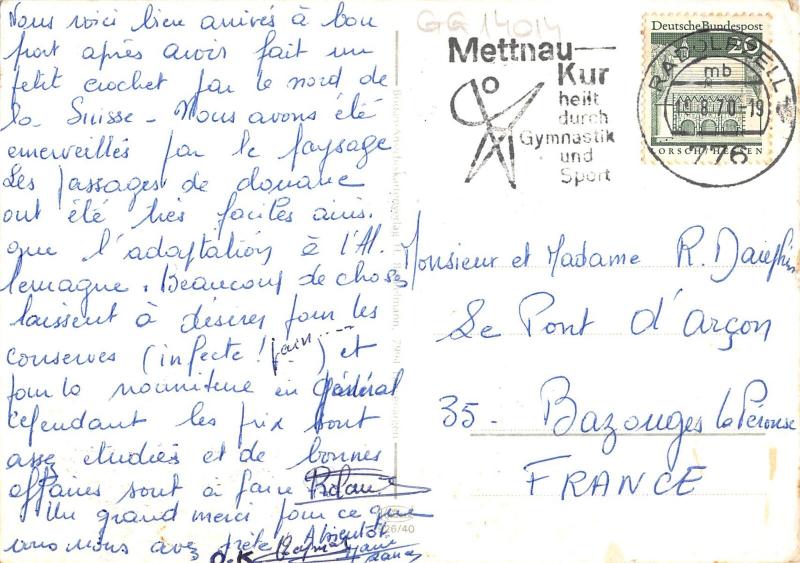 Nous voici bien arrivés à bon
port après avoir fait un
petit crochet par le nord de
la Suisse - Nous avons été
émerveillés par le paysage
Les passages de douane
ont été très faciles ainsi
que l'adaptation à l'Al
lemagne. Beaucoup de choses
laissent à désirer pour les
conserves (infecte! pain...) et
pour la nourriture en général
cependant les prix sont
assez étudiés et de bonnes
affaires sont à faire
Un grand merci pour ce que
vous nous avez prêté A bientôt
O.K
GG 14014
Mettnau-
Kur
heilt
durch
Gymnastik
und
Sport
Deutsche Bundespost
20
RADOLFZELL
mb
19.8.70-19
776
LORSCH/HESSEN
Monsieur et Madame R.
Le Pont d'Arçon
35 - Bazouges la Pérouse
FRANCE
26/40